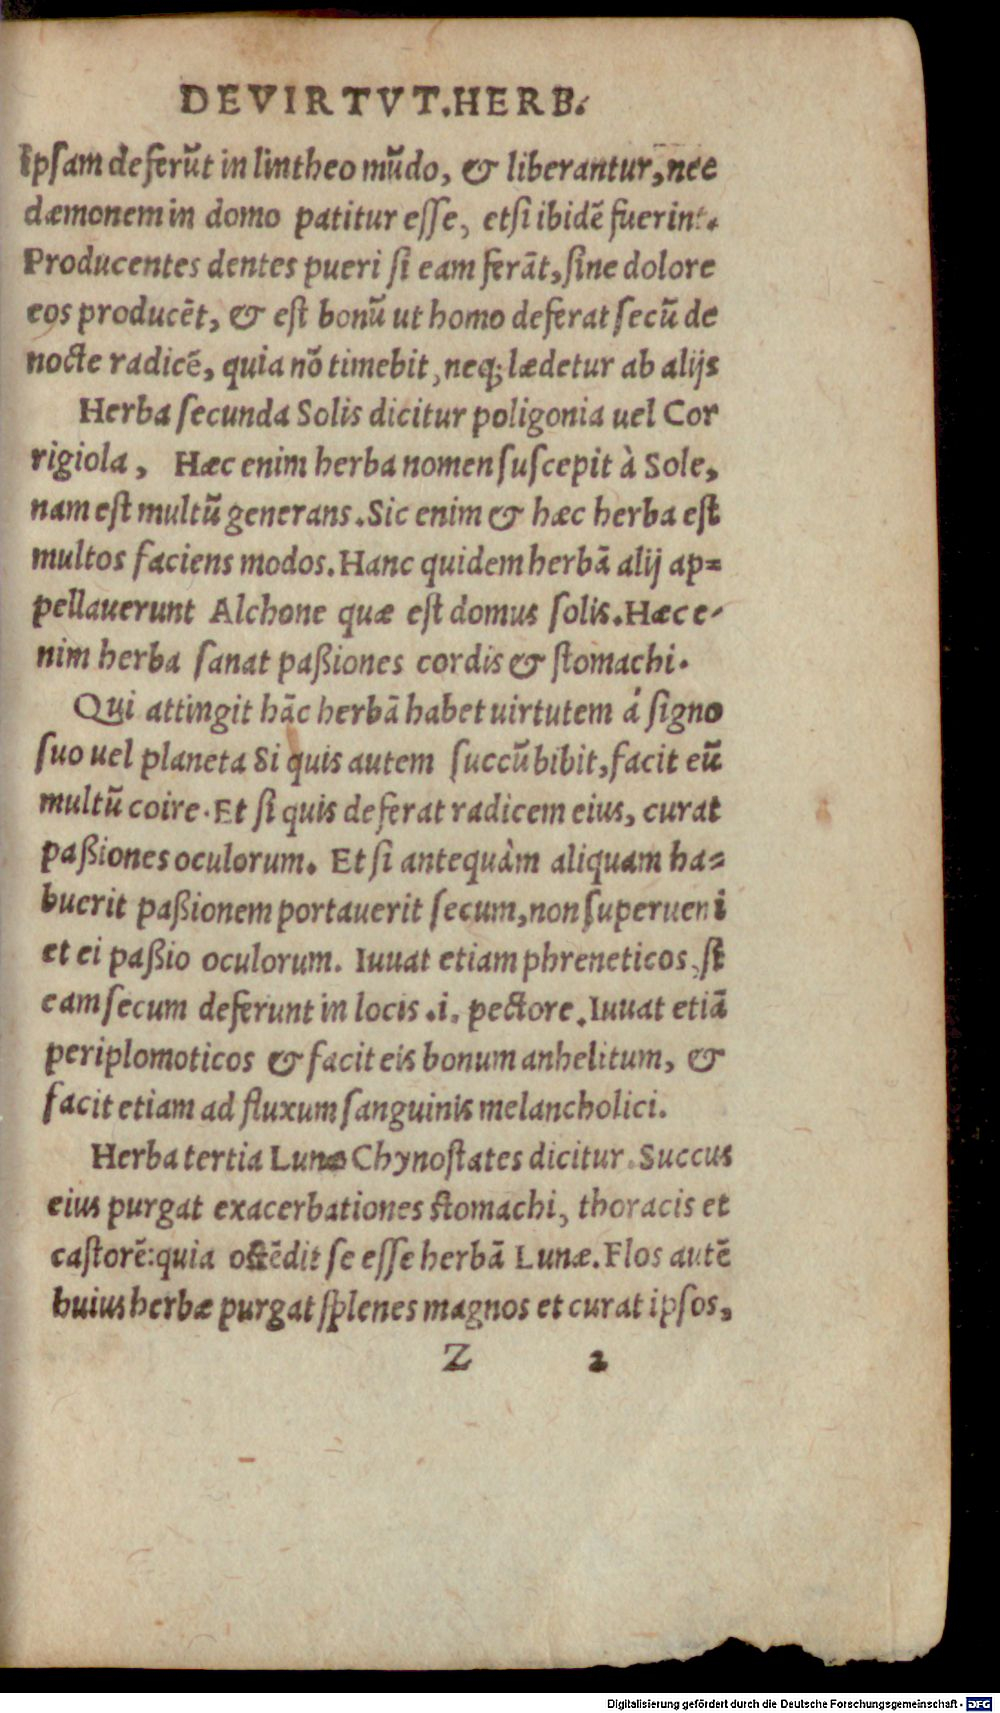 DE VIRTVT. HERB.
Ipsam deferũt in lintheo mũdo, & liberantur, nec
dæmonem in domo patitur esse, etsi ibidẽ fuerint.
Producentes dentes pueri si eam ferãt, sine dolore
eos producẽt, & est bonũ ut homo deferat secũ de
nocte radicẽ, quia nõ timebit, neq; lædetur ab alijs
Herba secunda Solis dicitur poligonia uel Cor
rigiola, Hæc enim herba nomen suscepit à Sole,
nam est multũ generans. Sic enim & hæc herba est
multos faciens modos. Hanc quidem herbã alij ap=
pellauerunt Alchone quæ est domus solis. Hæc e-
nim herba sanat paßiones cordis & stomachi.
Qui attingit hãc herbã habet uirtutem á signo
suo uel planeta Si quis autem succũ bibit, facit eũ
multũ coire. Et si quis deferat radicem eius, curat
paßiones oculorum. Et si antequàm aliquam ha=
buerit paßionem portauerit secum, non superueni
et ei paßio oculorum. Iuuat etiam phreneticos, st
eam secum deferunt in locis .i. pectore. Iuuat etiã
periplomoticos & facit eis bonum anhelitum, &
facit etiam ad fluxum sanguinis melancholici.
Herba tertia Lunæ Chynostates dicitur. Succus
eius purgat exacerbationes stomachi, thoracis et
castorẽ: quia ostẽdit se esse herbã Lunæ. Flos autẽ
huius herbæ purgat splenes magnos et curat ipsos,
Z 2
Digitalisierung gefördert durch die Deutsche Forschungsgemeinschaft - DFG